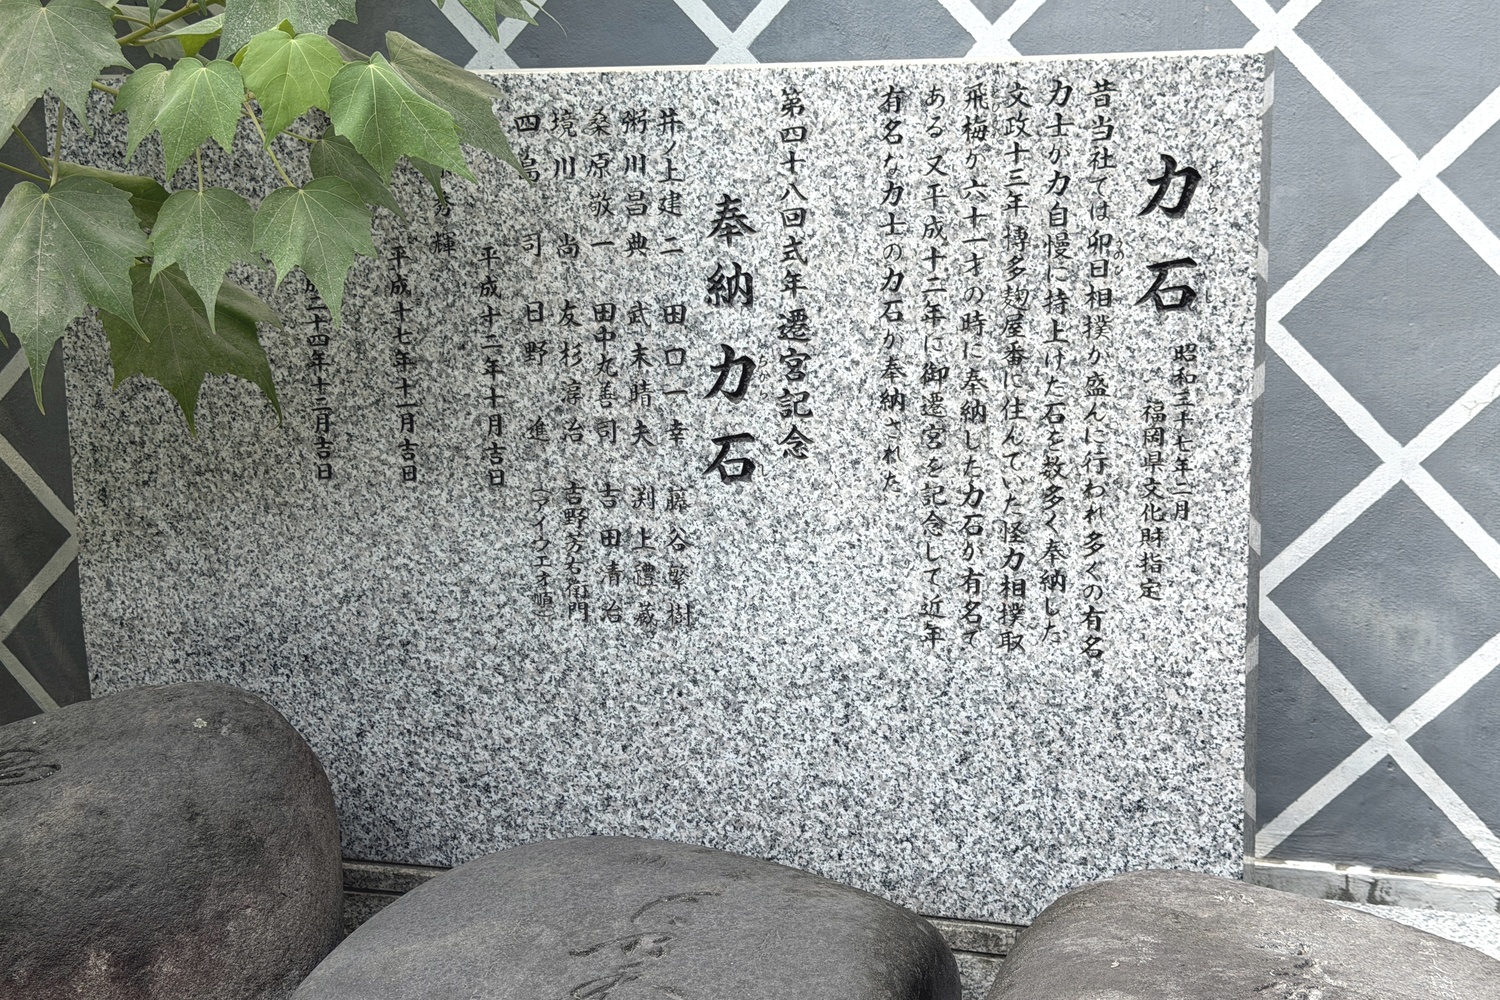 力石
昭和三十七年二月
福岡県文化財指定
昔当社では卯日相撲が盛んに行われ多くの有名
力士が力自慢に持上げた石を数多く奉納した
文政十三年博多麹屋番に住んでいた怪力相撲取
飛梅が六十一才の時に奉納した力石が有名で
ある 又平成十二年に御遷宮を記念して近年
有名な力士の力石が奉納された
第四十八回式年遷宮記念
奉納力石
井ノ上建二 田口一幸 藤谷繁樹
粥川昌典 武末晴夫 渕上禮蔵
桑原敬一 田中丸善司 吉田清治
境川尚 友杉淳治 吉野芳右衛門
四島司 日野進 (アイウエオ順)
平成十二年十月吉日
秀輝
平成十七年十一月吉日
成二十四年十二月吉日